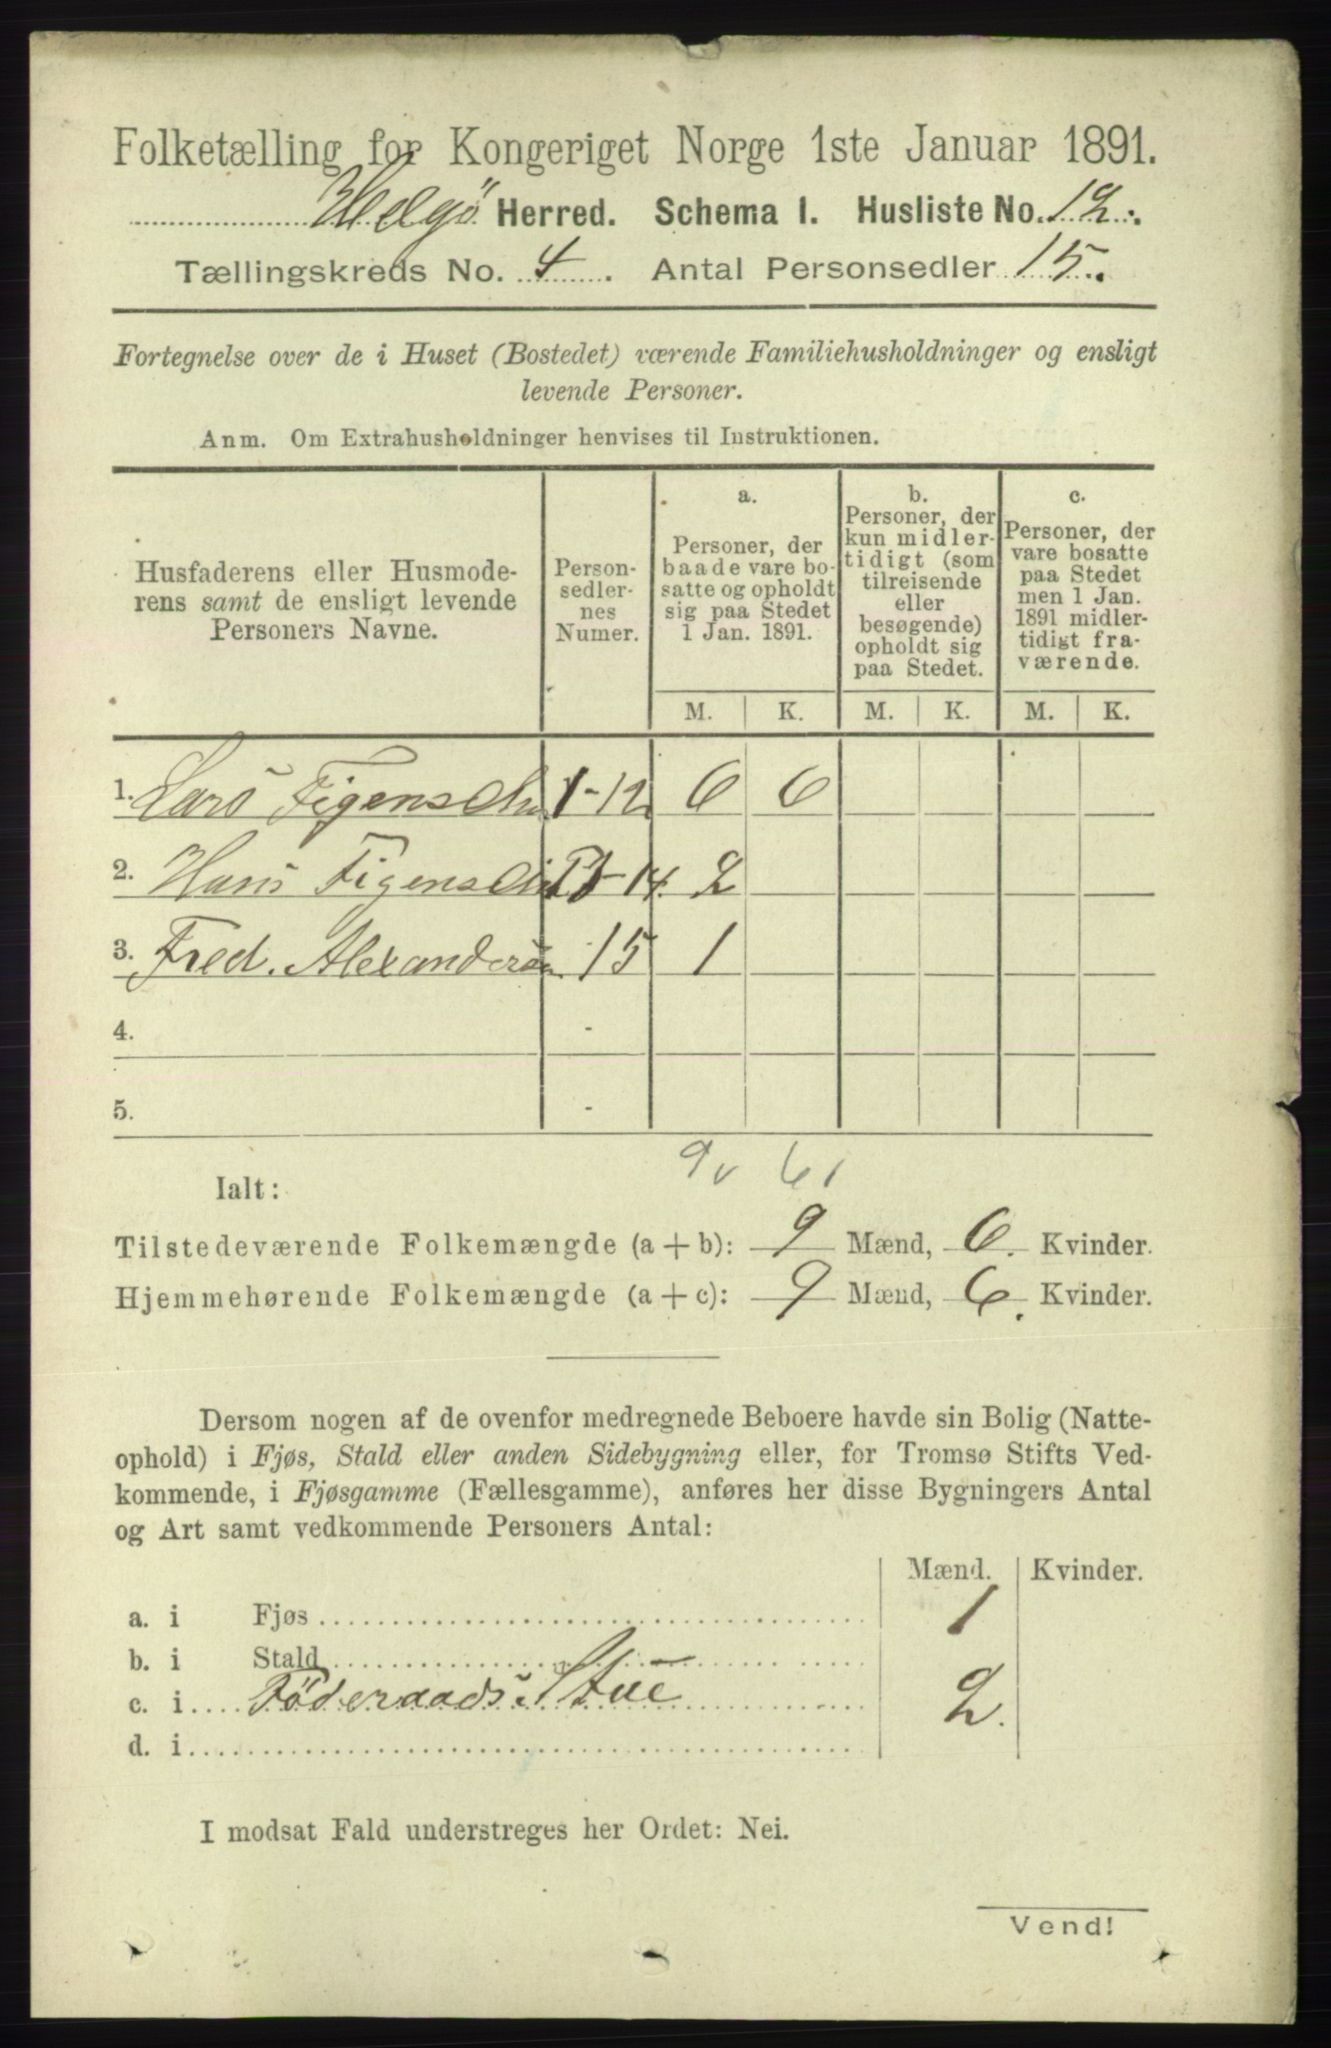 Folketælling for Kongeriget Norge 1ste Januar 1891.
Helgö Herred. Schema I. Husliste No. 12.
Tællingskreds No. 4. Antal Personsedler 15.
Fortegnelse over de i Huset (Bostedet) værende Familiehusholdninger og ensligt
levende Personer.
Anm. Om Extrahusholdninger henvises til Instruktionen.
Husfaderens eller Husmode-
rens samt de ensligt levende
Personers Navne.
Person-
sedler-
nes
Numer.
a.
Personer, der
baade vare bo-
satte og opholdt
sig paa Stedet
1 Jan. 1891.
b.
Personer, der
kun midler-
tidigt (som
tilreisende
eller
besøgende)
opholdt sig
paa Stedet.
c.
Personer, der
vare bosatte
paa Stedet
men 1 Jan.
1891 midler-
tidigt fra-
værende.
M. K. M. K. M. K.
1. Lars Figenschu 1-12 6 6
2. Hans Figenschu 13-14 2
3. Fred. Alexandersen 15 1
4. -
5. -
9 6
Ialt:
Tilstedeværende Folkemængde (a+b): 9 Mænd, 6. Kvinder.
Hjemmehørende Folkemængde (a+c): 9 Mænd, 6. Kvinder.
Dersom nogen af de ovenfor medregnede Beboere havde sin Bolig (Natte-
ophold) i Fjøs, Stald eller anden Sidebygning eller, for Tromsø Stifts Ved-
kommende, i Fjøsgamme (Fællesgamme), anføres her disse Bygningers Antal
og Art samt vedkommende Personers Antal:
Mænd. Kvinder.
a. i Fjøs 1
b. i Stald
c. i Föderaads Stue 2.
d. i
I modsat Fald understreges her Ordet: Nei.
Vend!